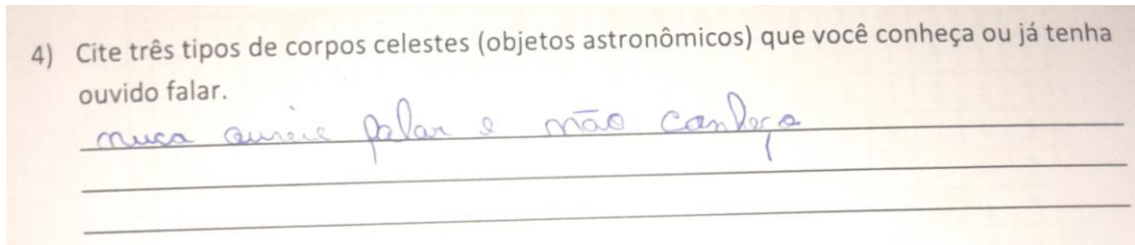 4) Cite três tipos de corpos celestes (objetos astronômicos) que você conheça ou já tenha
ouvido falar.
nuca falar e não conheço